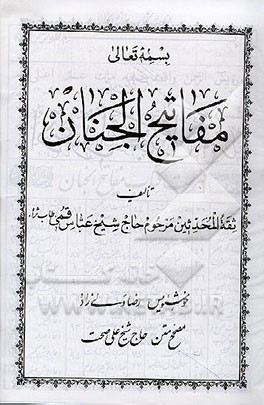 بسمه تعالی
مفاتیح الجنان
تألیف
ثقة المحدثین مرحوم حاج شیخ عباس قمی طاب ثراه
خوشنویس رضا
مصحح متن حاج شیخ علی صحت